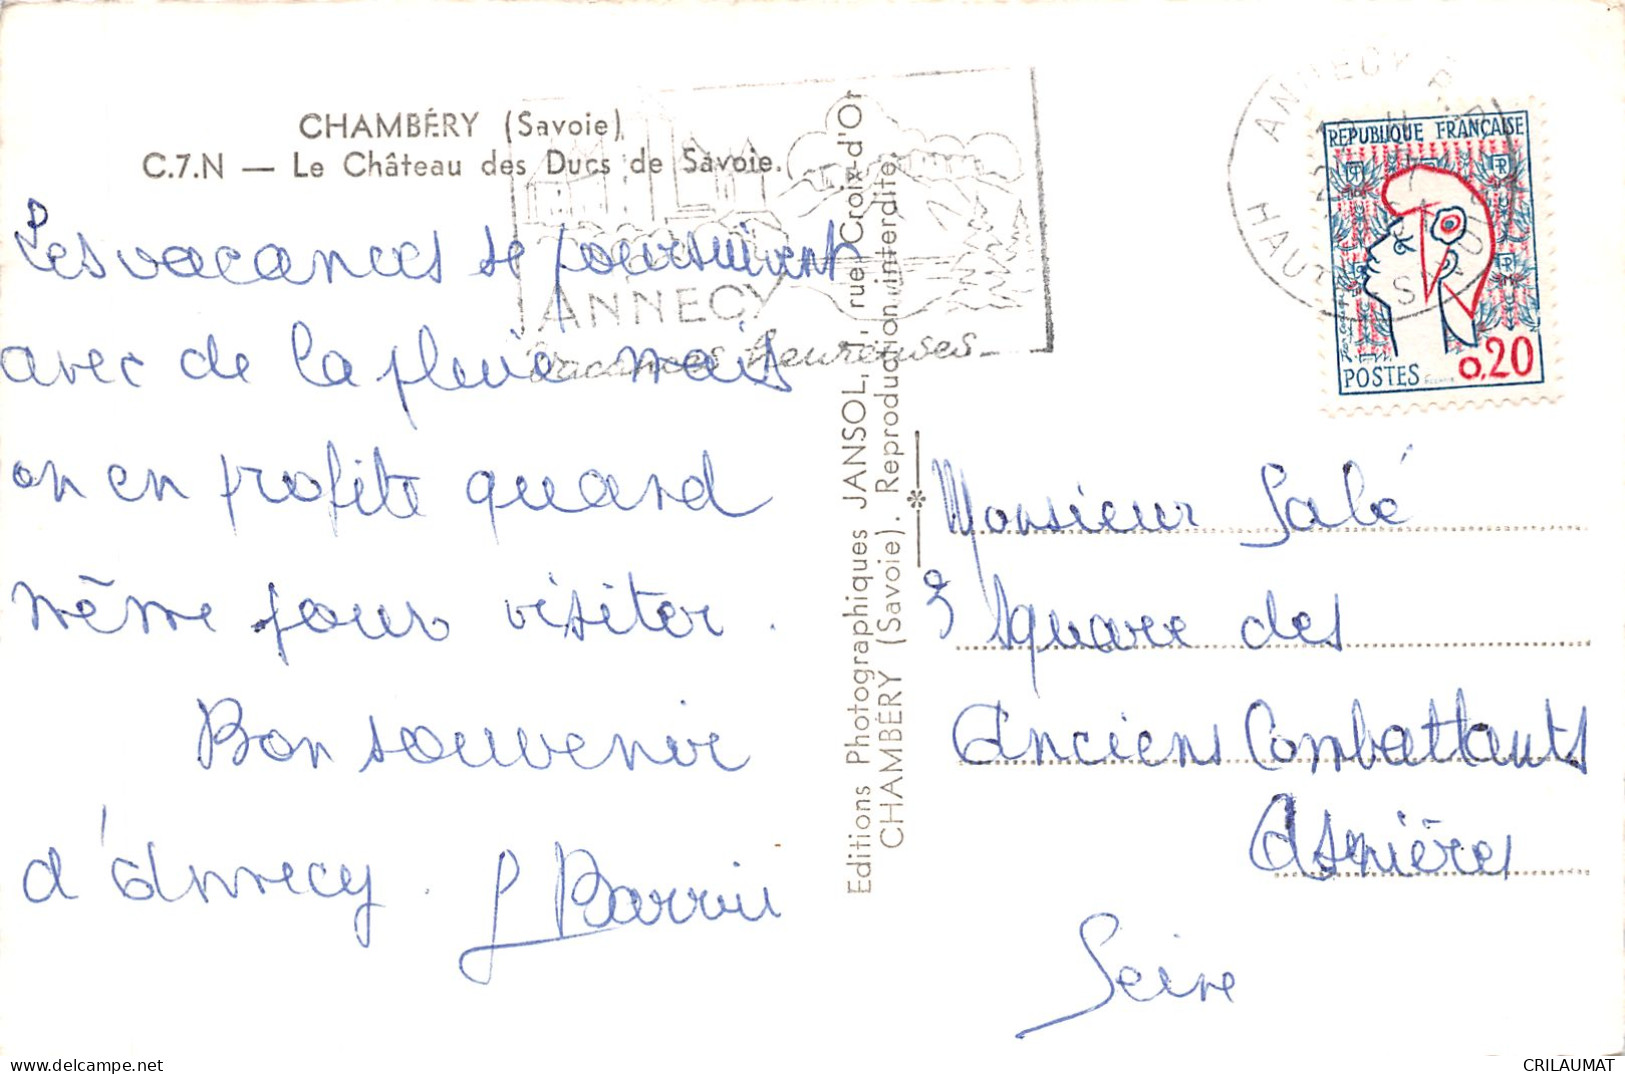 CHAMBÉRY (Savoie)
C.7.N — Le Château des Ducs de Savoie.
Les vacances se poursuivent
avec de la pluie mais
on en profite quand
même pour visiter.
Bon souvenir
d'Annecy.
ANNECY
Vacances heureuses
Editions Photographiques JANSOL, 1, rue Croix-d'Or
CHAMBÉRY (Savoie). Reproduction interdite.
ANNECY
HAUTE
REPUBLIQUE FRANÇAISE
POSTES 0,20
Monsieur Salé
3 Square des
Anciens Combattants
Asnières
Seine
delcampe.net
CRILAUMAT